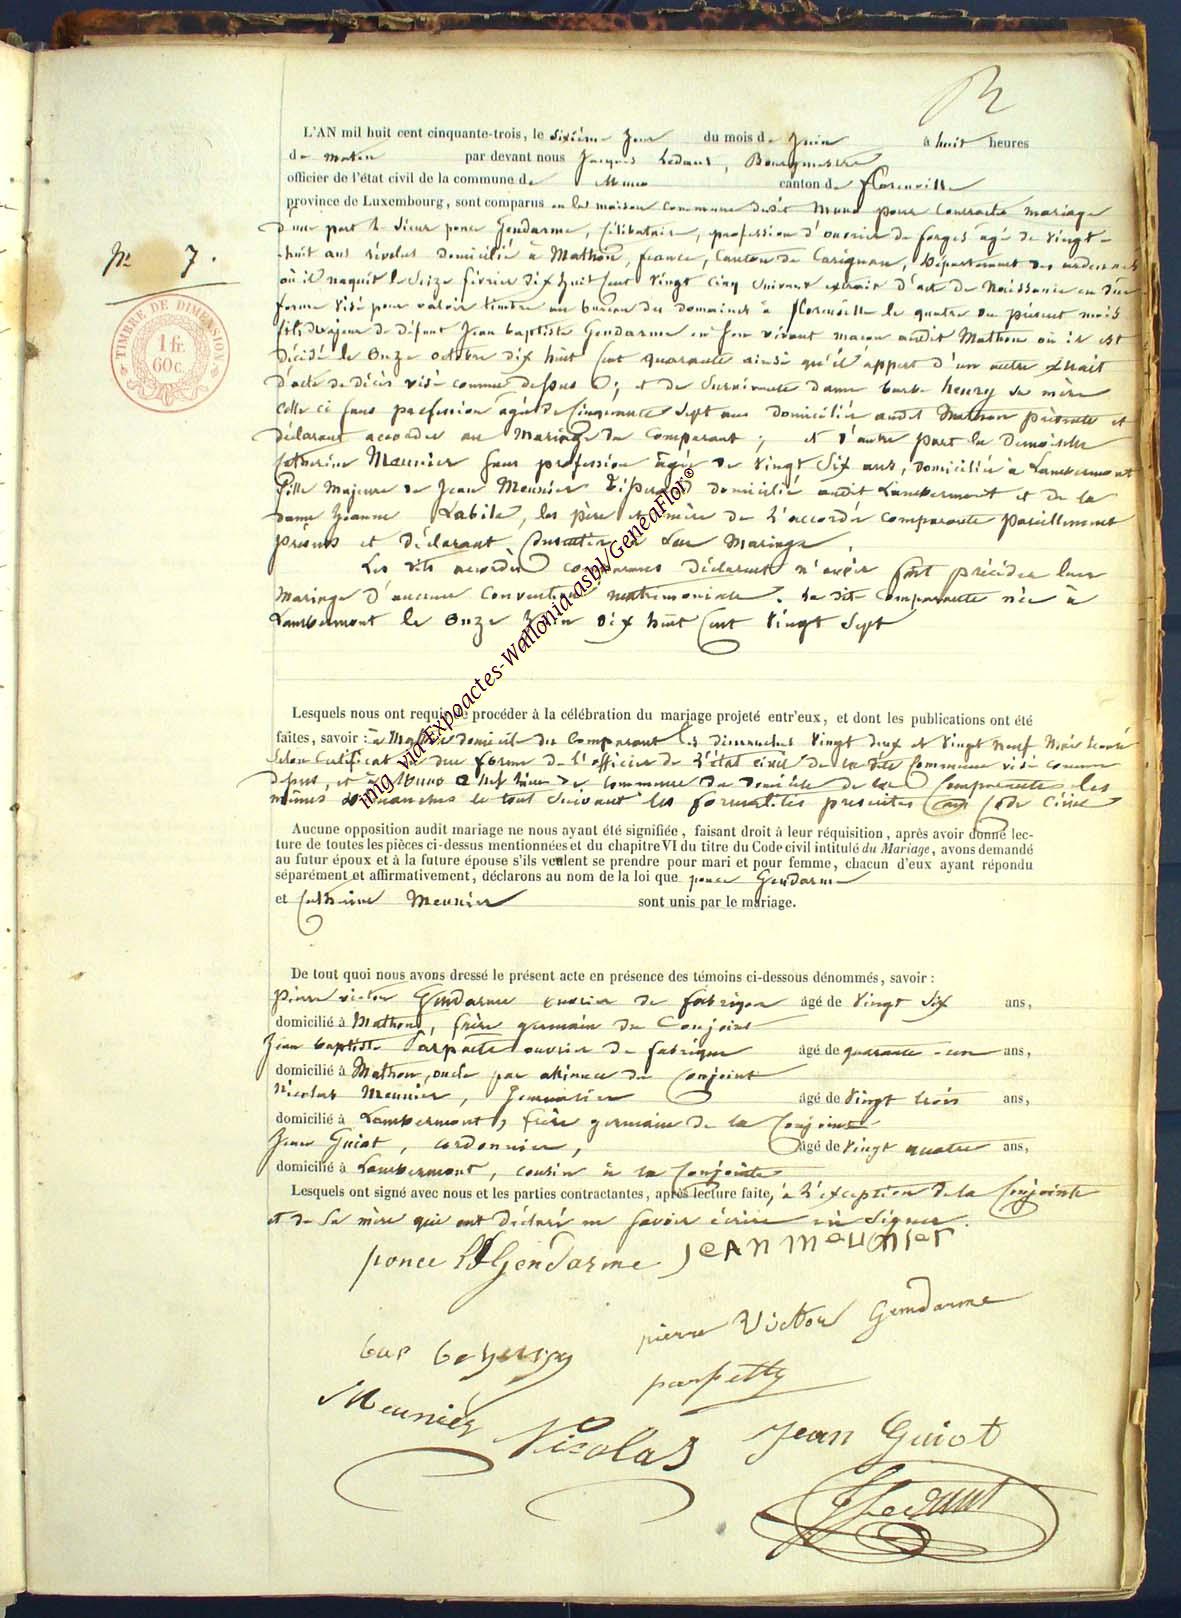 L'AN mil huit cent cinquante-trois, le sixième jour du mois de Juin à huit heures
du matin par devant nous Jacques Ledant, Bourgmestre
officier de l'état civil de la commune de Muno canton de florenville
province de Luxembourg, sont comparus en la maison commune dudit Muno pour contracter mariage
d'une part le sieur ponce Gendarme, célibataire, profession d'ouvrier de forges agé de vingt-
huit ans révolus domicilié à Mathon, france, Canton de Carignan, Département des ardennes
où il naquit le seize février dix huit cent vingt cinq suivant extrait d'acte de Naissance en due
forme visé pour valoir timbre au bureau des domaines à florenville le quatre du présent mois
fils Majeur de défunt Jean baptiste Gendarme en son vivant maçon audit Mathon où il est
décédé le Onze octobre dix huit cent quarante ainsi qu'il appert d'un autre extrait
d'acte de décès visé comme dessus ; et de survivante dame barbe henry sa mère
celle ci sans profession agée de cinquante sept ans domiciliée audit Mathon présente et
déclarant accorder au Mariage du Comparant ; et d'autre part la demoiselle
Catherine Meunier sans profession agée de vingt six ans, domiciliée à Lambermont
fille Majeure de Jean Meunier domicilié audit Lambermont et de la
dame Jeanne Labile, les père et mère de l'accordée comparante pareillement
présents et déclarant consentir à leur Mariage
Les dits accordés comparants déclarent n'avoir fait précéder leur
Mariage d'aucune Convention matrimoniale. la dite comparante née à
Lambermont le Onze Juin dix huit cent vingt sept
N° 7.
TIMBRE DE DIMENSION
1 fr.
60 c.
Lesquels nous ont requis de procéder à la célébration du mariage projeté entr'eux, et dont les publications ont été
faites, savoir : à Mathon domicile du Comparant les dimanches vingt deux et vingt neuf Mai
selon Certificat en due forme de l'officier de l'état civil de la dite Commune visé comme
dessus, et à Muno commune du domicile de la Comparante les
mêmes dimanches le tout suivant les formalités prescrites au Code Civil
Aucune opposition audit mariage ne nous ayant été signifiée, faisant droit à leur réquisition, après avoir donné lec-
ture de toutes les pièces ci-dessus mentionnées et du chapitre VI du titre du Code civil intitulé du Mariage, avons demandé
au futur époux et à la future épouse s'ils veulent se prendre pour mari et pour femme, chacun d'eux ayant répondu
séparément et affirmativement, déclarons au nom de la loi que ponce Gendarme
et Catherine Meunier sont unis par le mariage.
De tout quoi nous avons dressé le présent acte en présence des témoins ci-dessous dénommés, savoir :
Pierre victor Gendarme ouvrier de fabrique âgé de vingt six ans,
domicilié à Mathon, frère germain du Conjoint
Jean baptiste Parpaite ouvrier de fabrique âgé de quarante-un ans,
domicilié à Mathon, oncle par alliance du Conjoint
Nicolas Meunier, âgé de vingt trois ans,
domicilié à Lambermont, frère germain de la Conjointe
Jean Guiot, cordonnier, âgé de vingt quatre ans,
domicilié à Lambermont, cousin à la Conjointe
Lesquels ont signé avec nous et les parties contractantes, après lecture faite, à l'exception de la Conjointe
et de sa mère qui ont déclaré ne savoir écrire ni signer.
ponce Gendarme JEAN MeUNIer
pierre Victor Gendarme
Meunier Nicolas
Jean Guiot
J Ledant
img. via Expoactes-Wallonia-asbl/GeneaFlor®